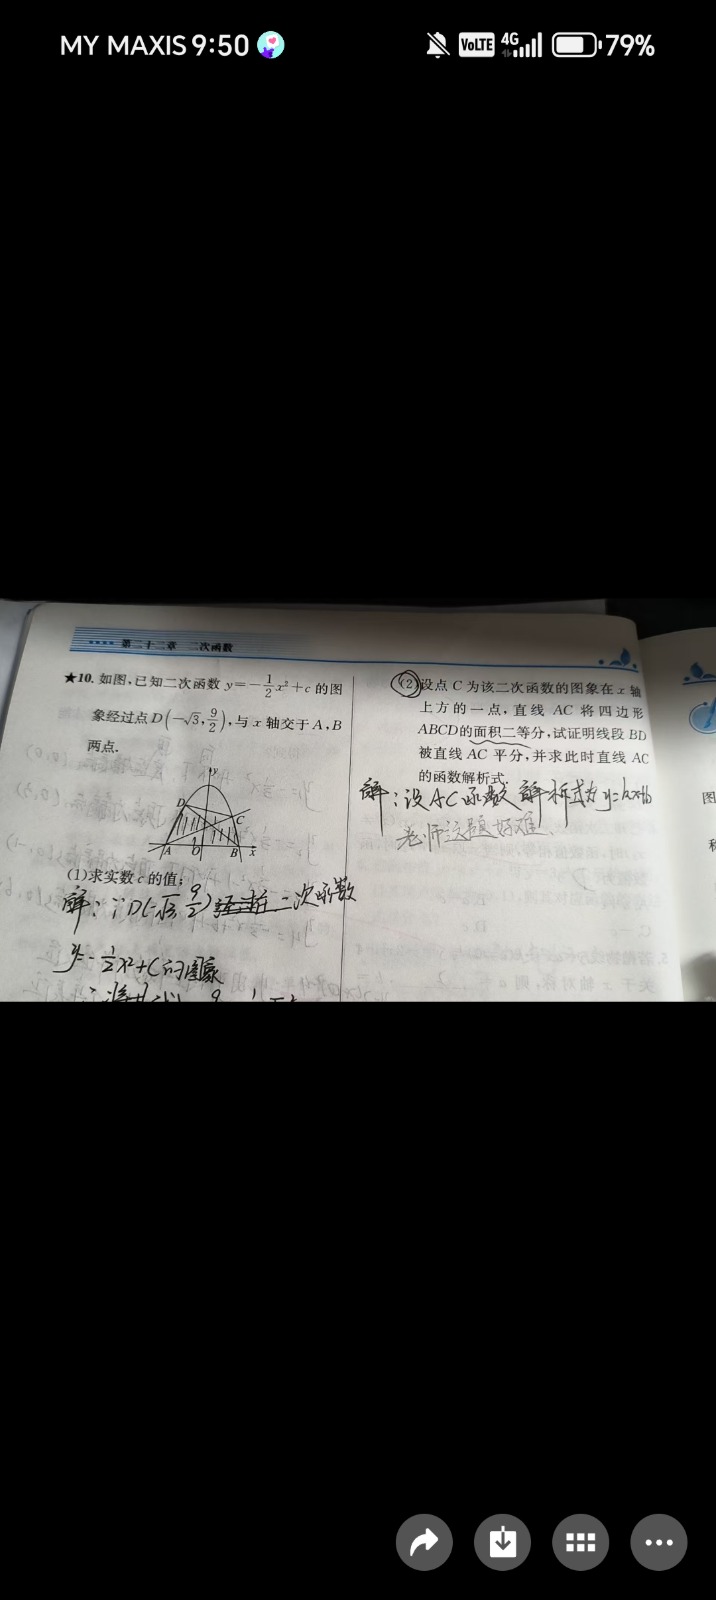 MY MAXIS 9:50
VoLTE 4G 79%
第二十二章 二次函数
★10. 如图,已知二次函数 y=-1/2x²+c 的图
象经过点 D(-√3,9/2),与 x 轴交于 A,B
两点.
y
D
C
A O B x
(1)求实数 c 的值;
解:∵D(-√3,9/2)经过在二次函数
y=-1/2x²+C的图象
(2)设点 C 为该二次函数的图象在 x 轴
上方的一点,直线 AC 将四边形
ABCD的面积二等分,试证明线段 BD
被直线 AC 平分,并求此时直线 AC
的函数解析式.
解:设AC函数解析式为y=kx+b
老师这题好难、
图